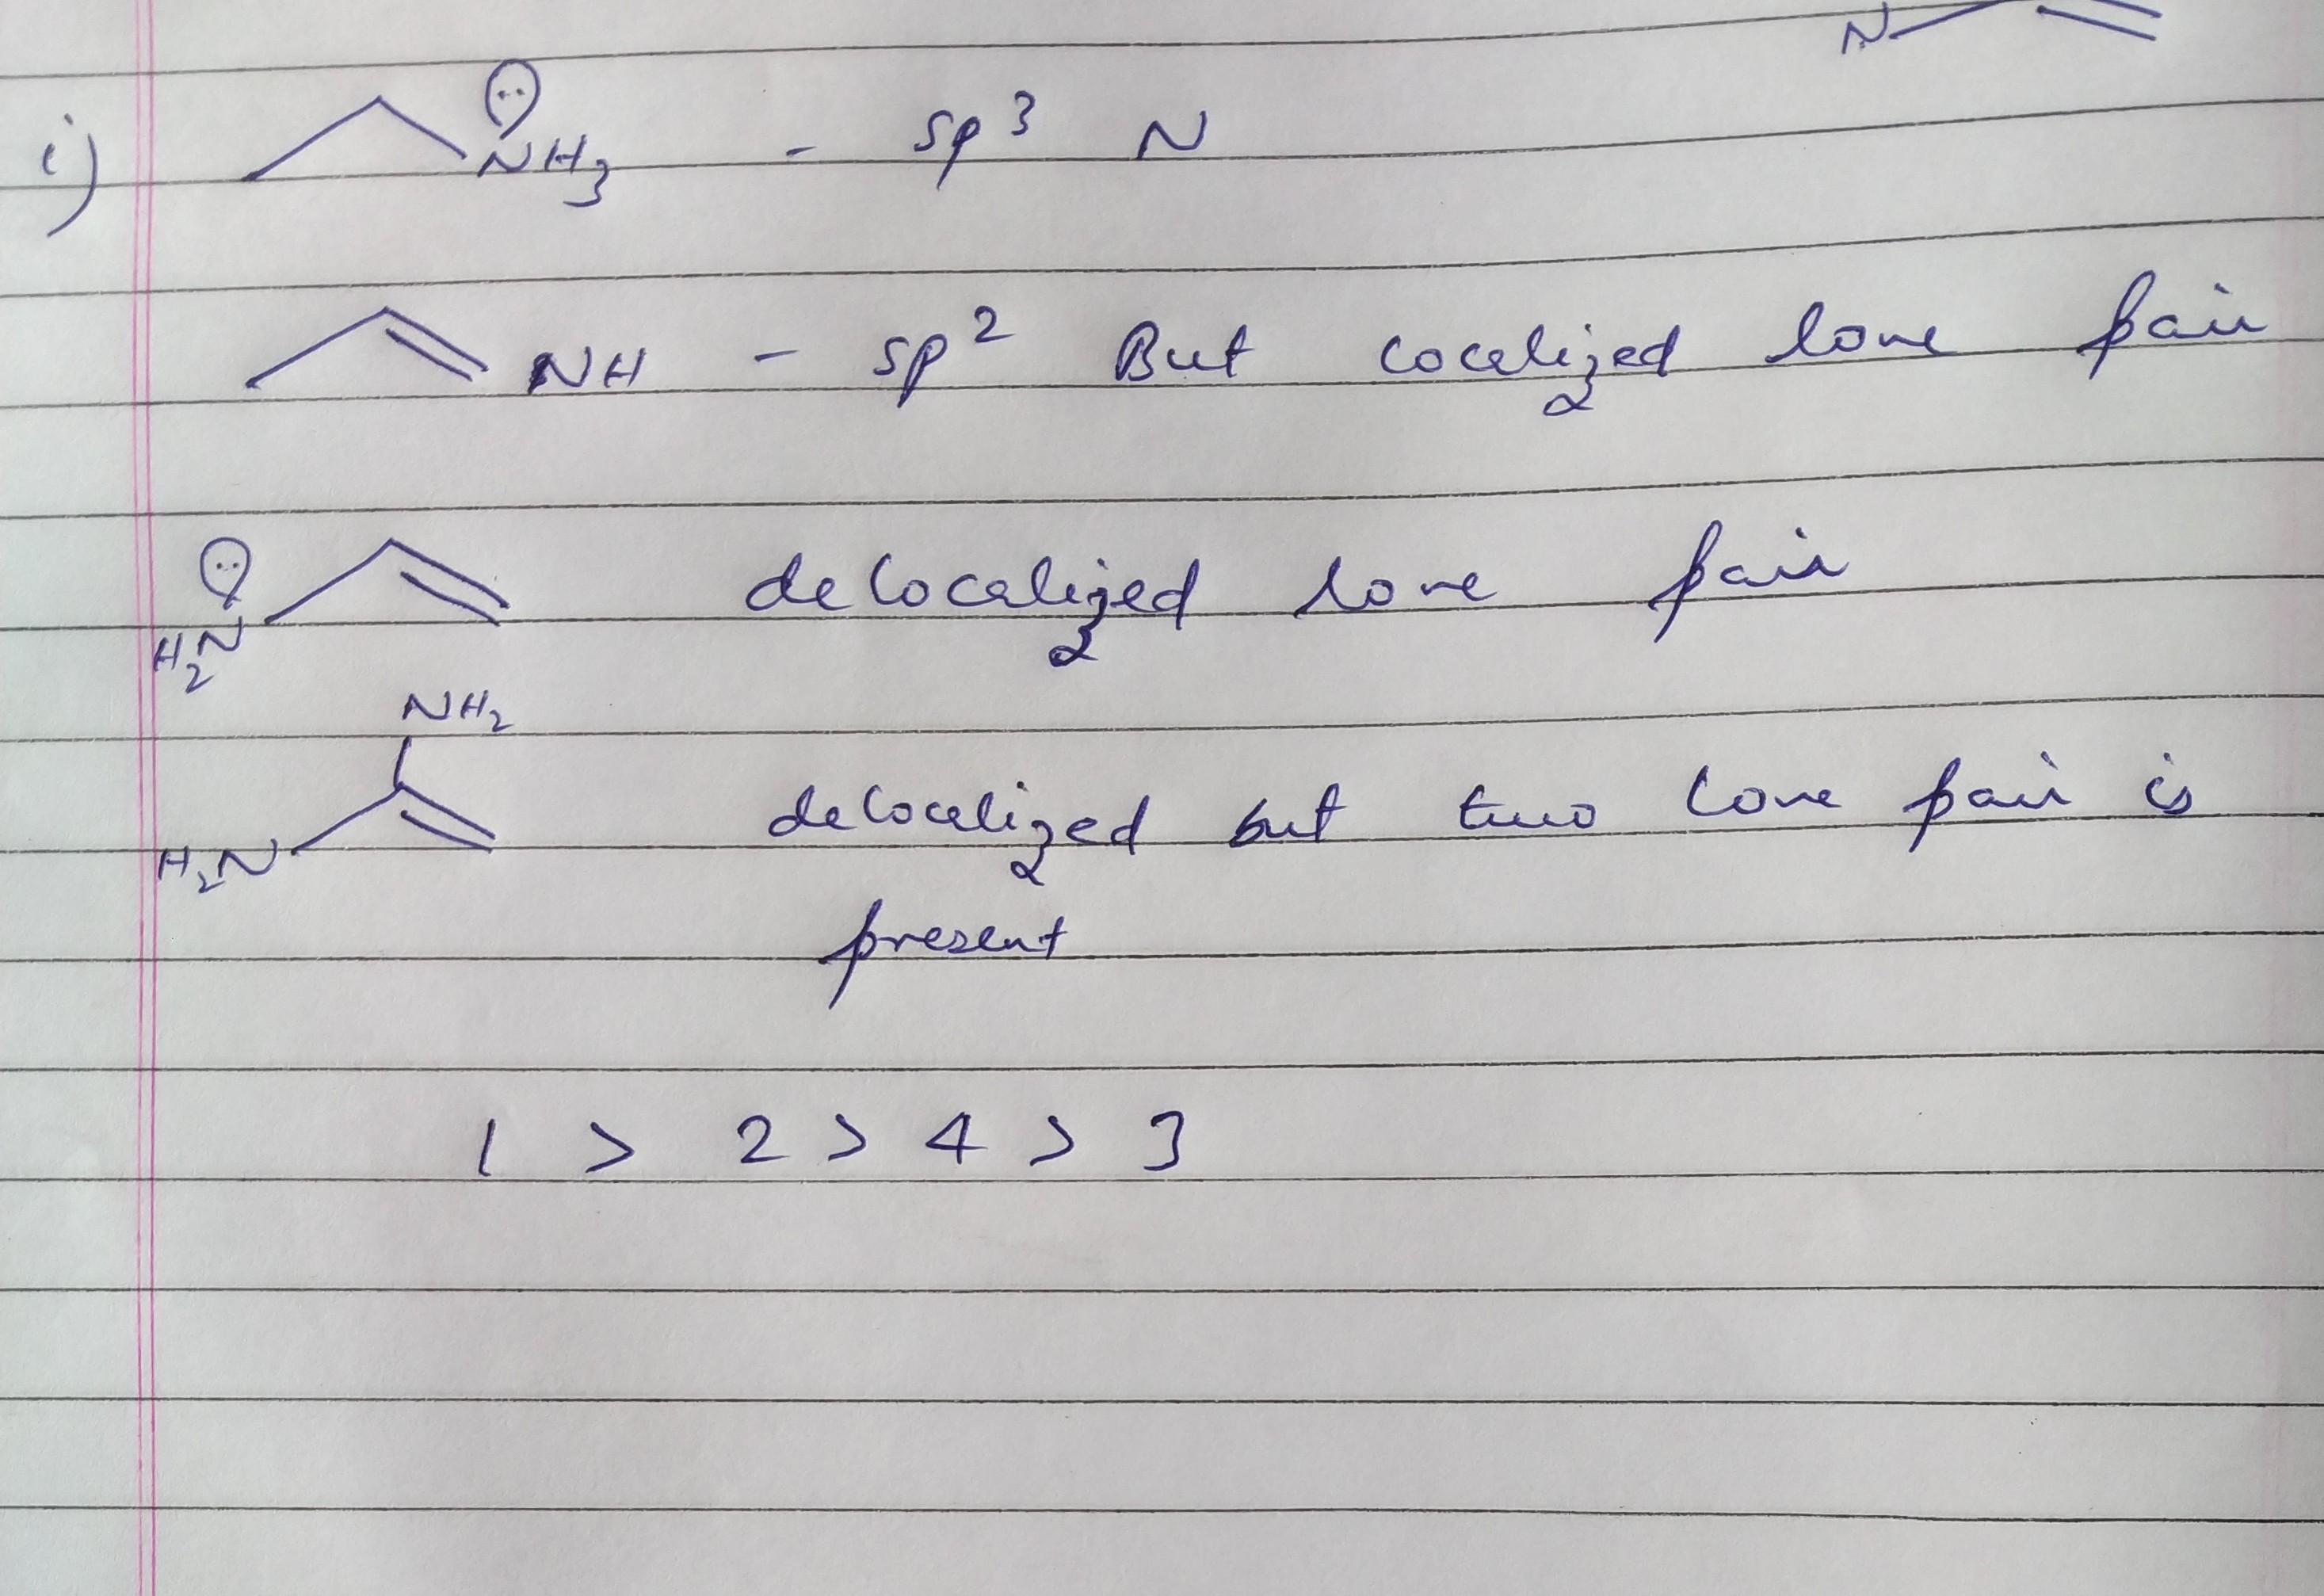 N
i) NH3 - sp3 N
NH - sp2 But localized lone pair
H2N delocalized lone pair
NH2
H2N delocalized but two lone pair is
present
1 > 2 > 4 > 3